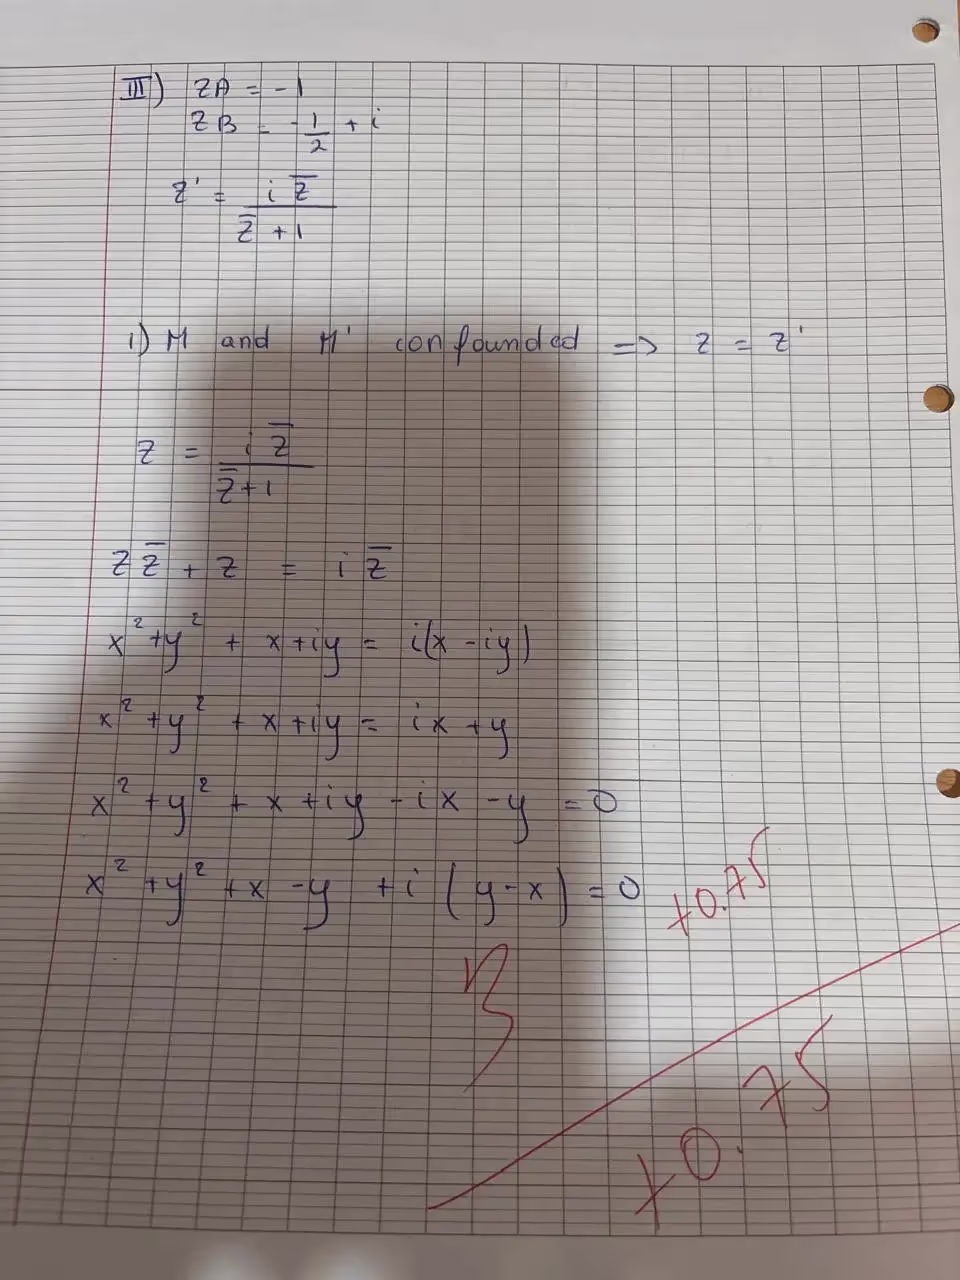 III) ZA = -1
ZB = -1/2 + i
Z' = i z̅ / z̅ + 1
1) M and M' confounded => z = z'
z = i z̅ / z̅ + 1
z z̅ + z = i z̅
x² + y² + x + iy = i(x - iy)
x² + y² + x + iy = ix + y
x² + y² + x + iy - ix - y = 0
x² + y² + x - y + i(y - x) = 0
+0.75
+0.75